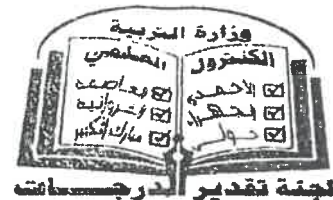 وزارة التربية
الكنترول
الأحمدي
الجهراء
حولي
العاصمة
الفروانية
مبارك الكبير
لجنة تقدير الدرجــــات